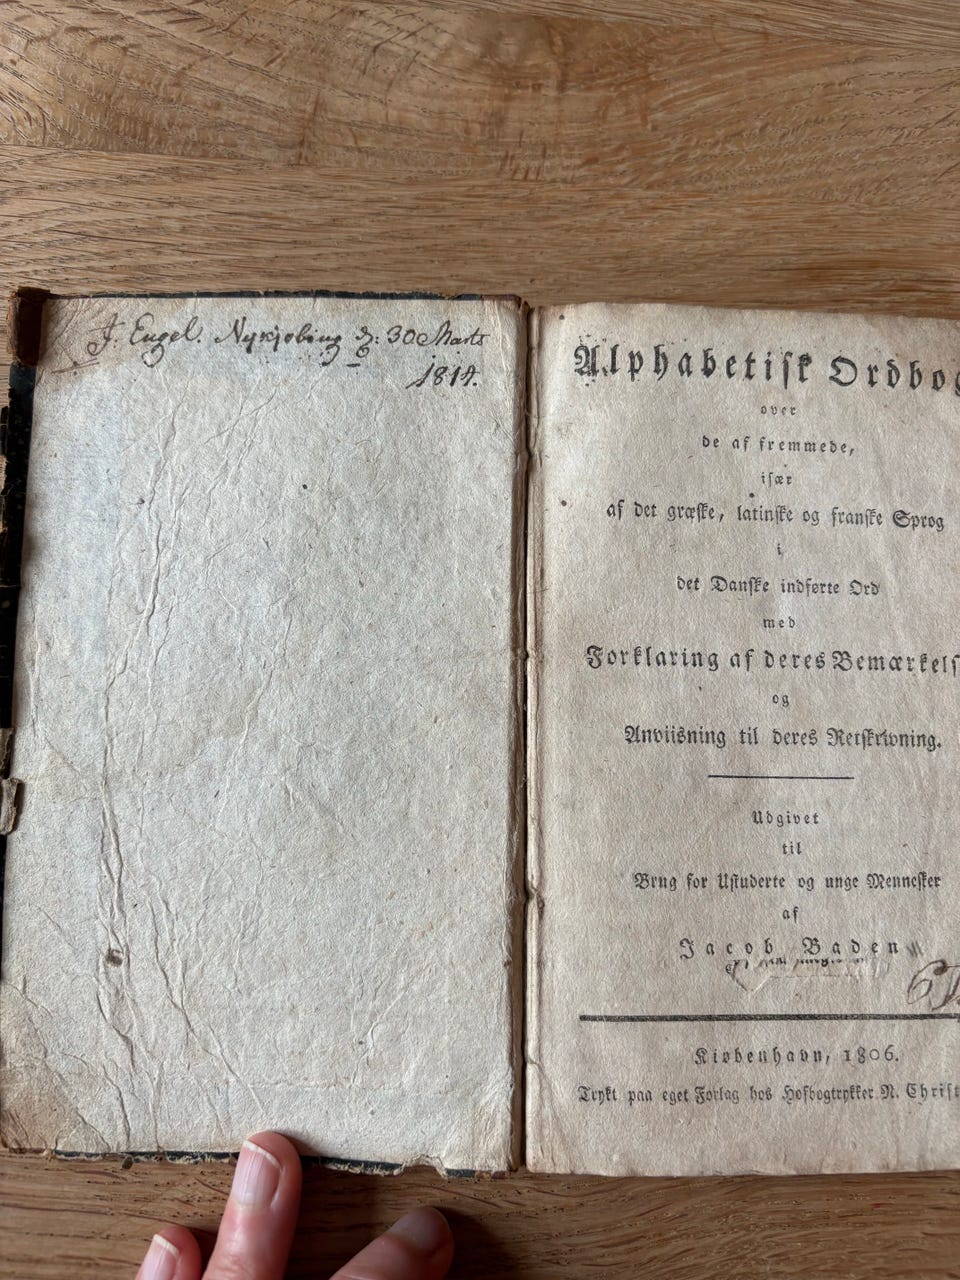 J. Engel. Nykjøbing d: 30 Marts
1814.
Alphabetisk Ordbog
over
de af fremmede,
især
af det græske, latinske og franske Sprog
i
det Danske indførte Ord
med
Forklaring af deres Bemærkels
og
Anviisning til deres Retskrivning.
Udgivet
til
Brug for Ustuderte og unge Mennesker
af
Jacob Baden
Kiøbenhavn, 1806.
Trykt paa eget Forlag hos Hofbogtrykker N. Christ